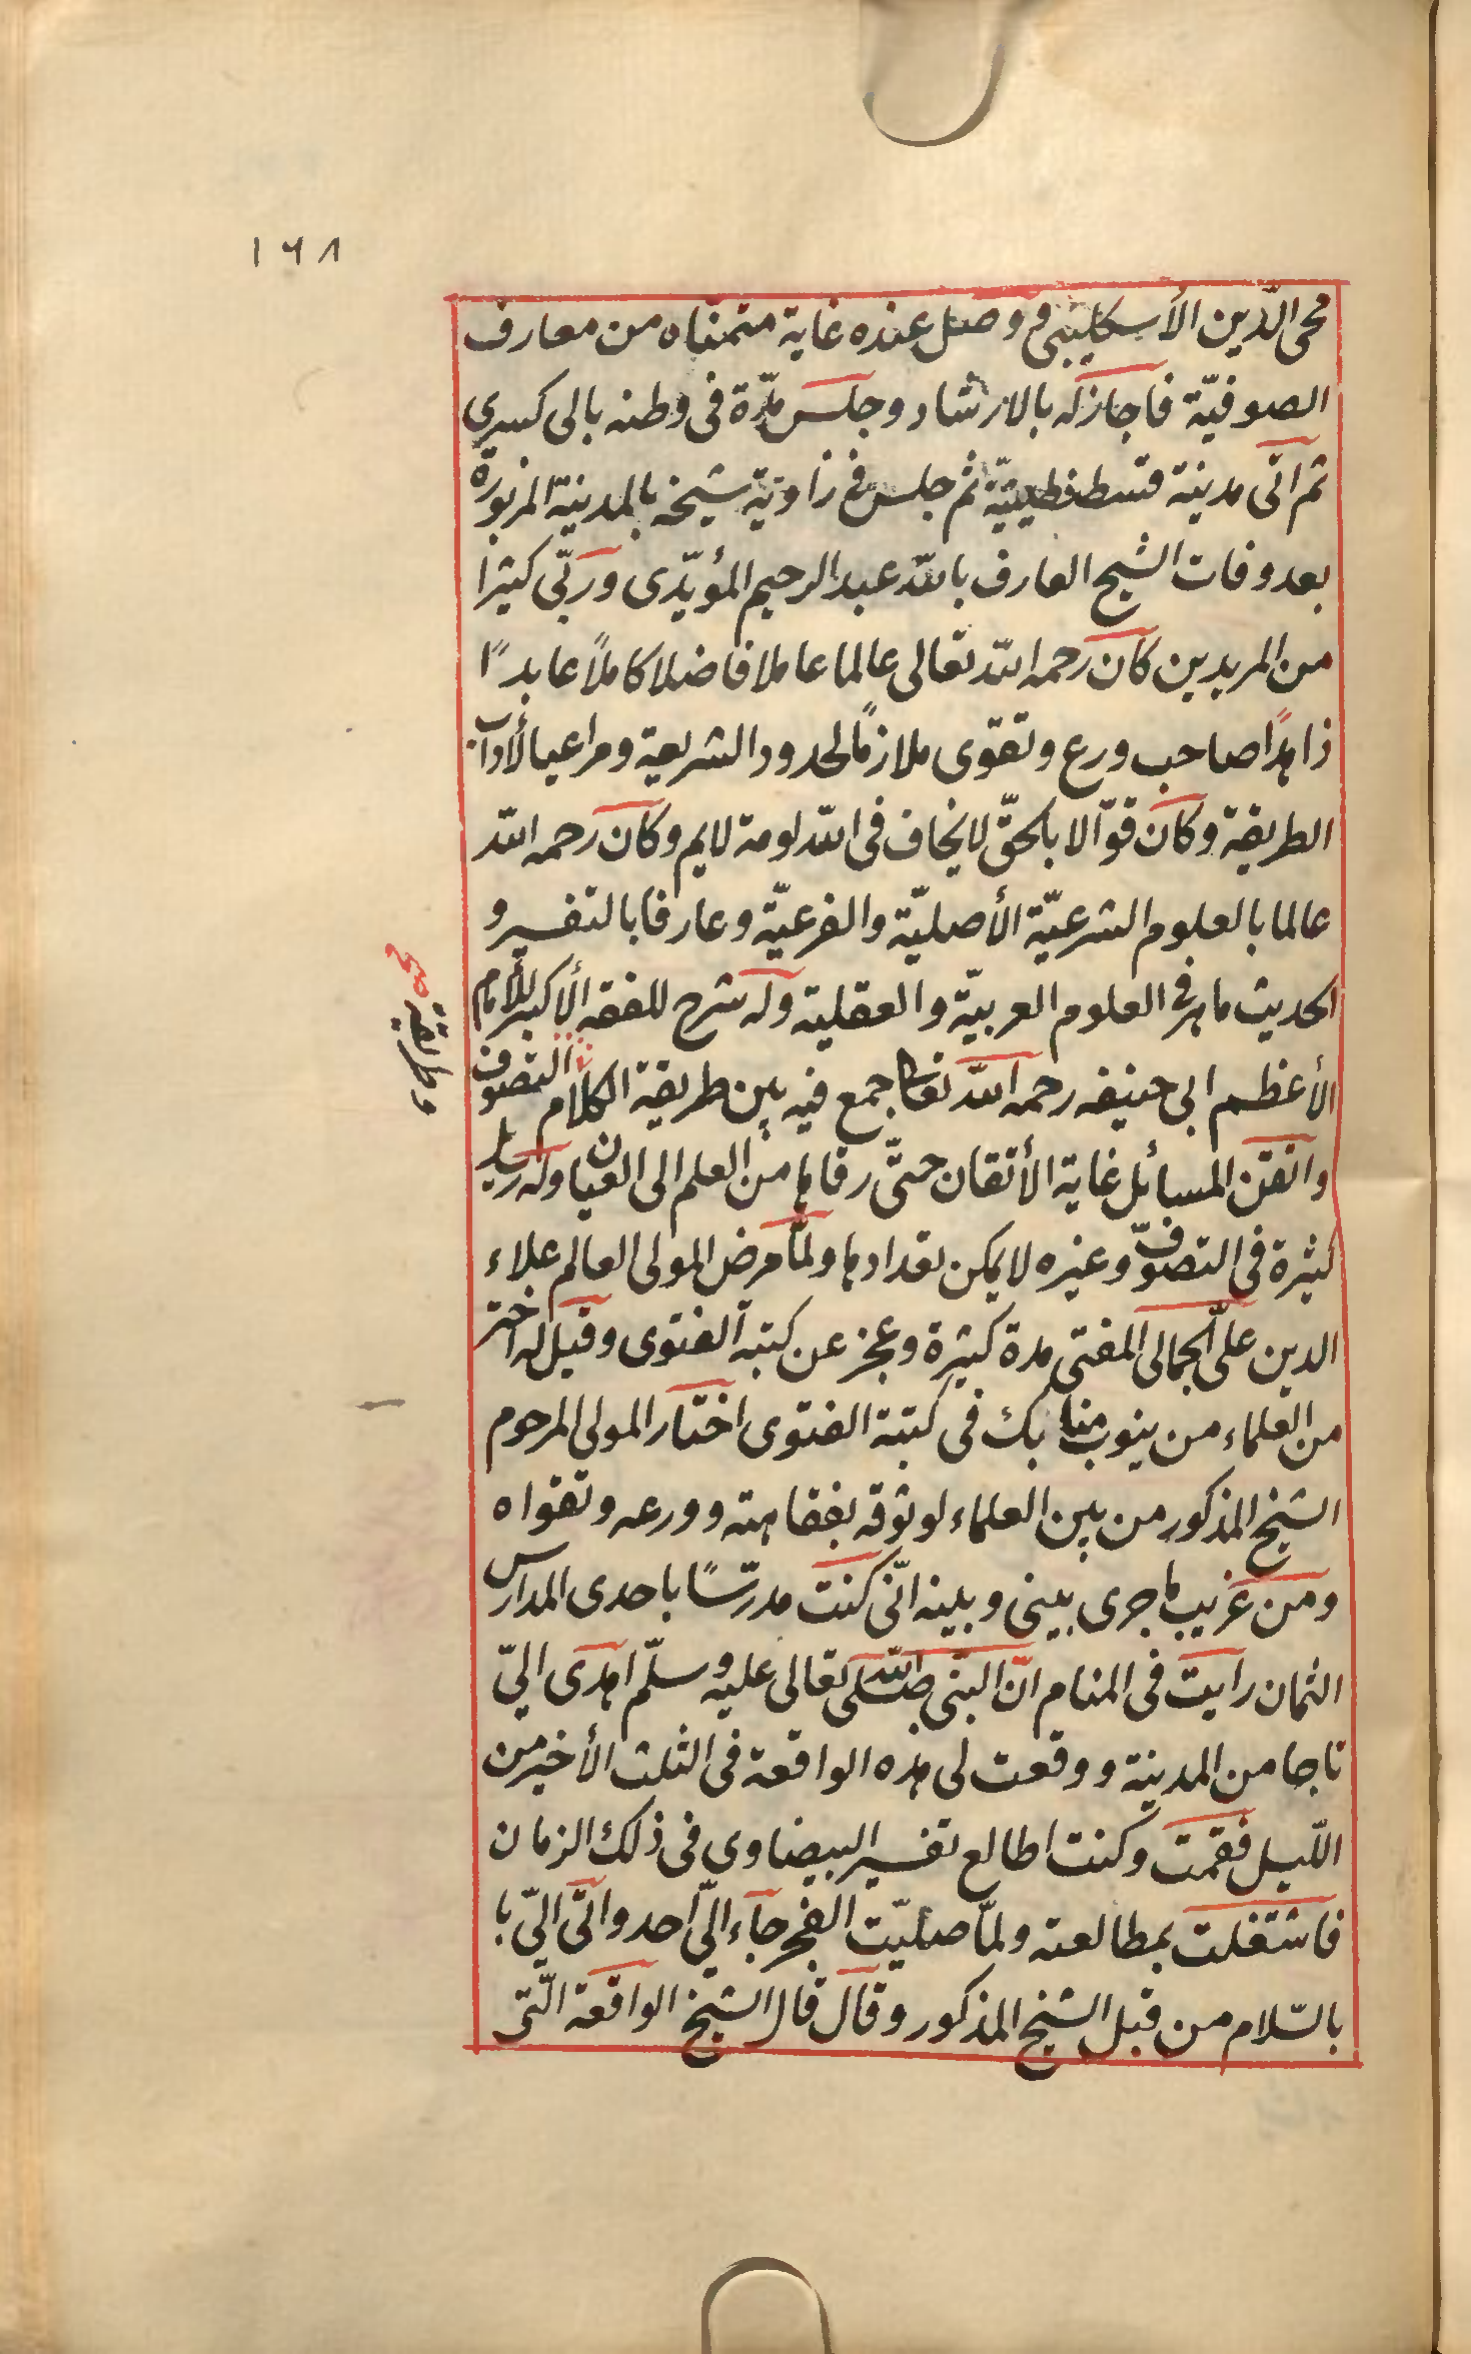 ١٦٨
محى الدّين الأسكليبى و وصل عنده غاية متمناه من معارف
الصوفيّة فاجازله بالارشاد وجلس مدّة فى وطنه بالى كسرى
ثم اتى مدينة قسطنطينيّة ثم جلس فى زاوية شيخه بالمدينة المزبورة
بعد وفات الشيخ العارف بالله عبد الرحيم المؤيّدى وربّى كثيرا
من المريدين كان رحمه الله تعالى عالما عاملا فاضلا كاملاً عابدًا
زاهدًا صاحب ورع وتقوى ملازمًا لحدود الشريعة ومراعيا لأداب
الطريقة وكان قوّالا بالحقّ لايخاف فى الله لومة لايم وكان رحمه الله
عالما بالعلوم الشرعيّة الأصليّة والفرعيّة وعارفا بالتفسير و
الحديث ماهر فى العلوم العربيّة والعقلية وله شرح للفقه الأكبر للأمام
الأعظم ابى حنيفه رحمه الله تعالى جمع فيه بين طريقة الكلام التصوف
وطريقة صح
واتقن المسائل غاية الأتقان حتّى رقاها من العلم الى العيان وله رسايل
كثيرة فى التصوّف وغيره لايمكن تعدادها ولمّا مرض المولى العالم علاء
الدين علىّ الجمالى المفتى مدة كثيرة وعجز عن كتبة الفتوى وقيل له اختر
من العلماء من ينوب منابك فى كتبة الفتوى اختار المولى المرحوم
الشيخ المذكور من بين العلماء لوثوقه بفقاهته وورعه وتقواه
ومن غريب ما جرى بينى وبينه انّى كنت مدرّسًا باحدى المدارس
الثمان رايت فى المنام انّ النبّى صلى الله تعالى عليه وسلّم اهدى الىّ
تاجا من المدينة ووقعت لى هذه الواقعة فى الثلث الأخير من
اللّيل فقمت وكنت اطالع تفسير البيضاوي فى ذلك الزمان
فاشتغلت بمطالعته ولمّا صليّت الفجر جآء الىّ احد واتى الىّ با
بالسّلام من قبل الشيخ المذكور وقال قال الشيخ الواقعة الّتى